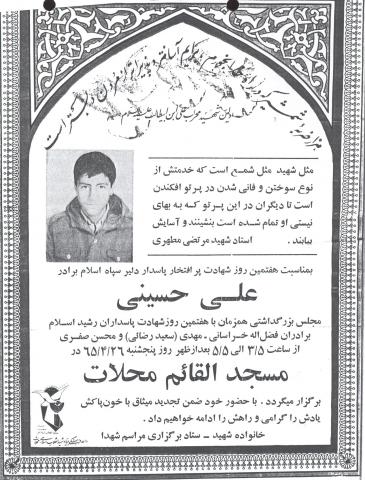 مثل شهید مثل شمع است که خدمتش از
نوع سوختن و فانی شدن در پرتو افکندن
است تا دیگران در این پرتو که به بهای
نیستی او تمام شده است بنشینند و آسایش
بیابند . استاد شهید مرتضی مطهری
بمناسبت هفتمین روز شهادت پر افتخار پاسدار دلیر سپاه اسلام برادر
علی حسینی
مجلس بزرگداشتی همزمان با هفتمین روز شهادت پاسداران رشید اسلام
برادران فضل‌اله خراسانی - مهدی (سعید رضائی) و محسن صفری
از ساعت ۳/۵ الی ۵/۵ بعدازظهر روز پنجشنبه ۶۵/۴/۲۶ در
مسجد القائم محلات
برگزار میگردد . با حضور خود ضمن تجدید میثاق با خون‌پاکش
یادش را گرامی و راهش را ادامه خواهیم داد .
خانواده شهید - ستاد برگزاری مراسم شهدا